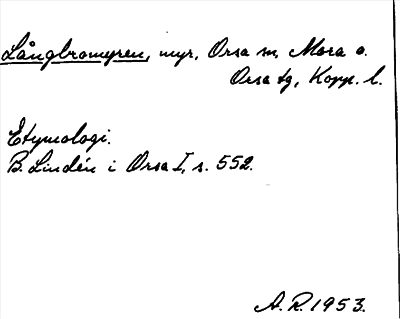 Långbromyren, myr, Orsa sn, Mora o.
Orsa tg, Kopp. l.
Etymologi.
B. Lindén i Orsa I, s. 552.
A. R. 1953.